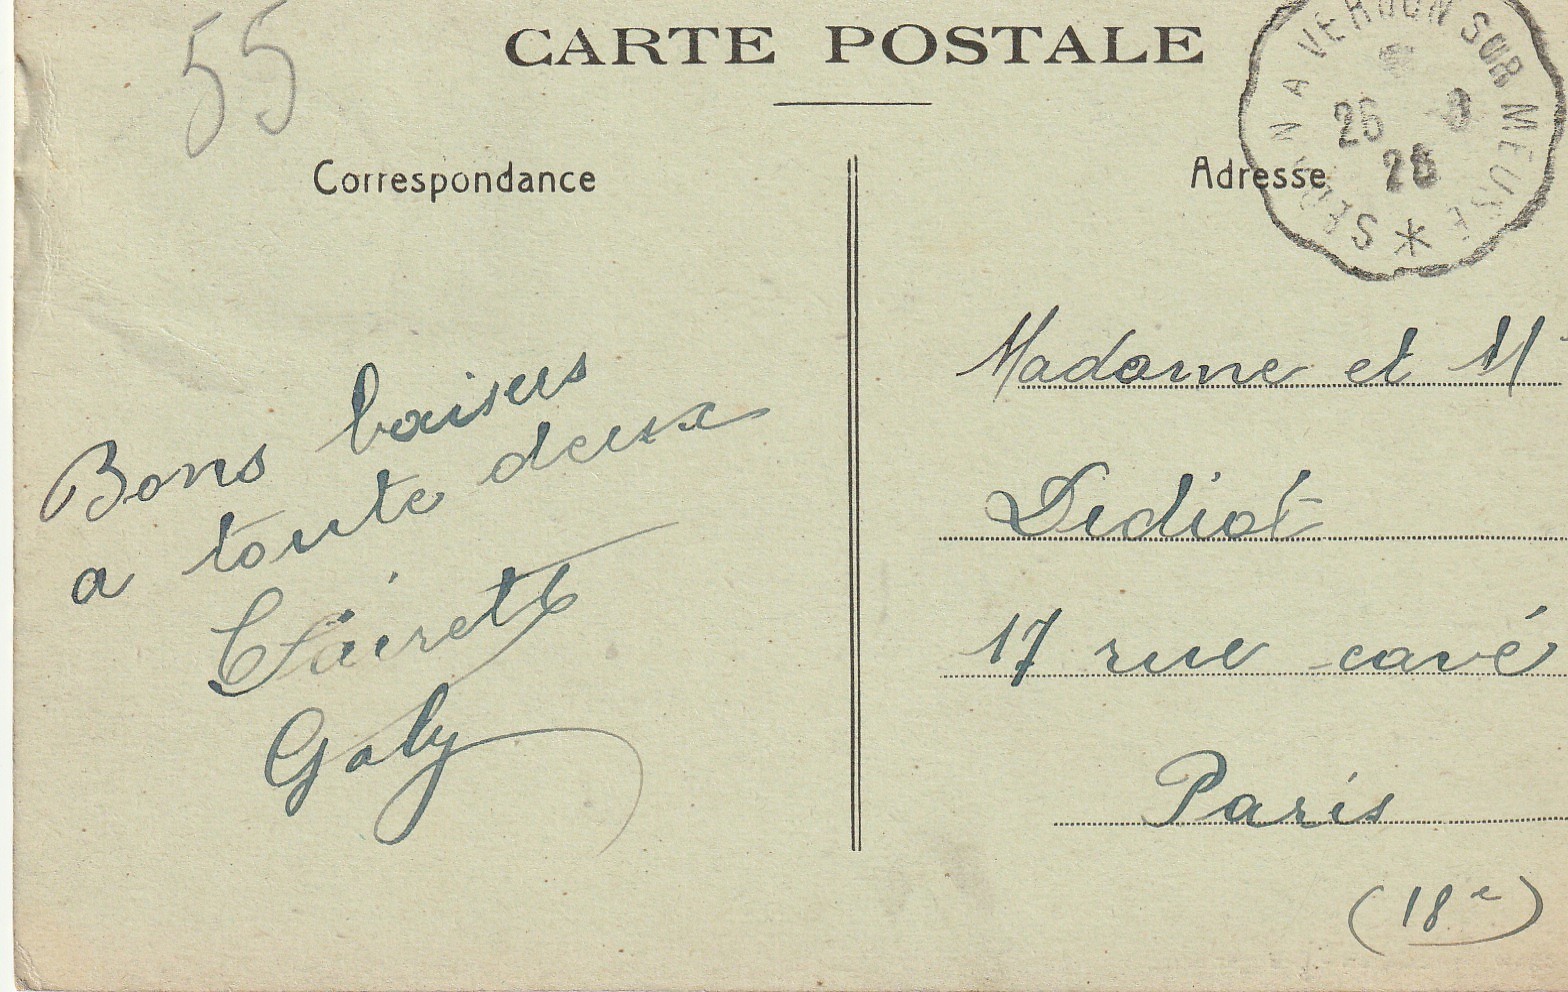 55
CARTE POSTALE
SEDAN A VERDUN SUR MEUSE
26
28
Correspondance
Adresse
Bons baisers
a toute deux
Clairette
Galy
Madame et M
Didiot
17 rue cavé
Paris
(18e)